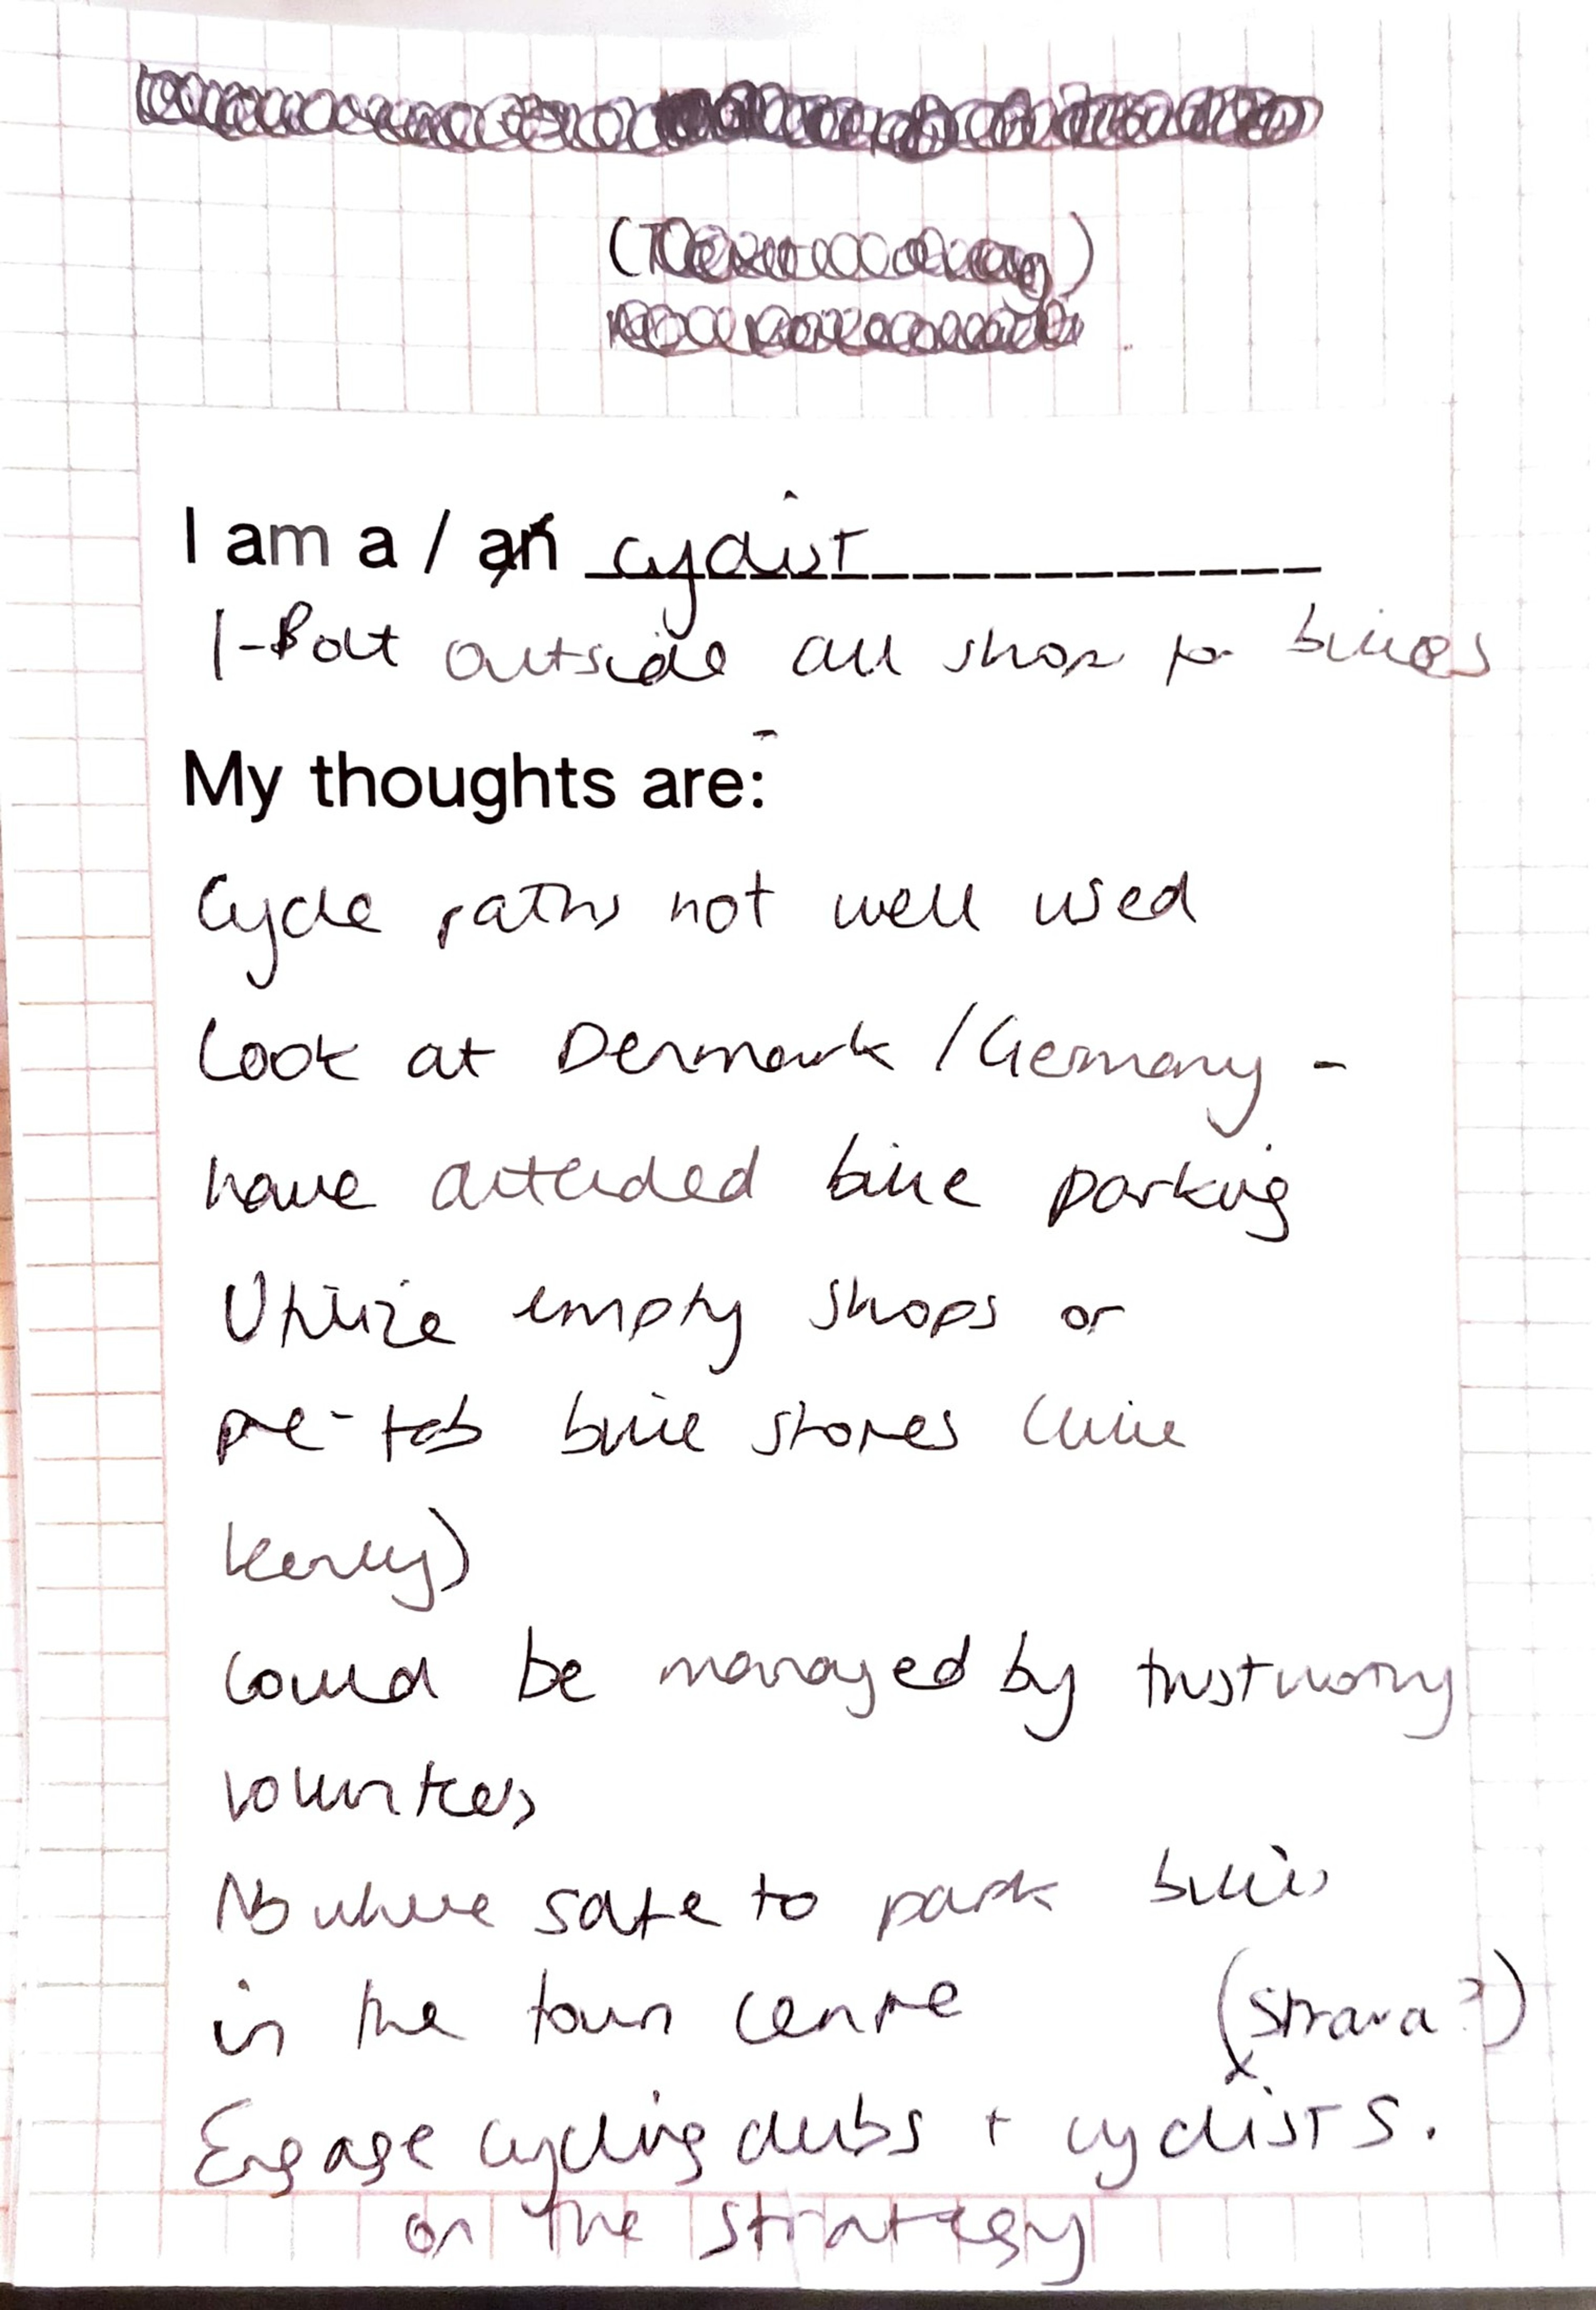 I am a / an cyclist
1-Bolt outside all shop for bikes
My thoughts are:
Cycle paths not well used
Look at Denmark / Germany -
have attended bike parking
Utilize empty shops or
pre-fab bike stores (like
Kenley)
Could be managed by trustworthy
volunteers
No where safe to park bikes
in the town centre (Strava?)
Engage cycling clubs + cyclists.
on the strategy